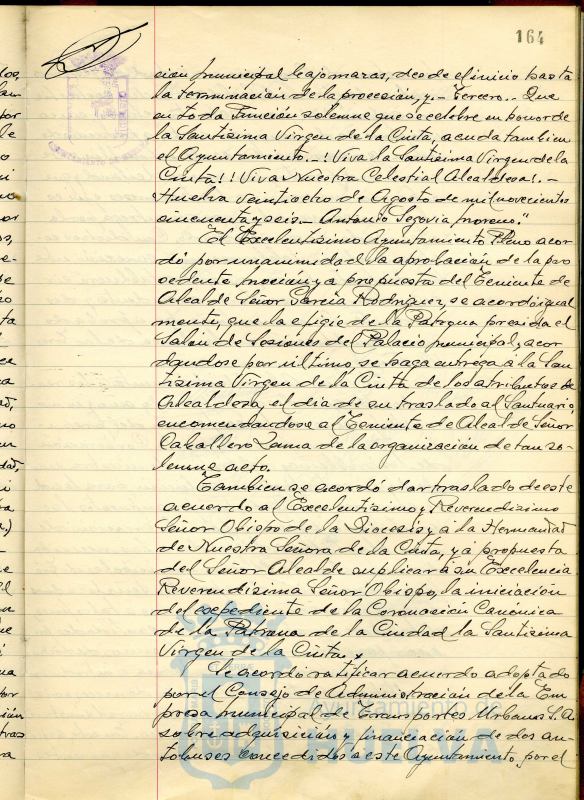 164
ción municipal bajo mazas, desde el inicio hasta
la terminación de la procesión, y.- Tercero.- Que
en toda Función solemne que se celebre en honor de
la Santísima Virgen de la Cinta, acuda tambien
el Ayuntamiento.- ¡Viva la Santísima Virgen de la
Cinta! ¡Viva Nuestra Celestial Alcaldesa!.-
Huelva veintiocho de Agosto de mil novecientos
cincuenta y seis.- Antonio Segovia Moreno."
El Excelentísimo Ayuntamiento Pleno acor
dó por unanimidad la aprobación de la pre
cedente moción, y á propuesta del Teniente de
Alcalde Señor García Rodríguez, se acordó igual
mente, que la efigie de la Patrona presida el
Salón de Sesiones del Palacio municipal, acor
dándose por último, se haga entrega á la San
tísima Virgen de la Cinta de los atributos de
Alcaldesa, el día de su traslado al Santuario,
encomendándose al Teniente de Alcalde Señor
Caballero Zama de la organización de tan so-
lemne acto.
Tambien se acordó dar traslado de este
acuerdo al Excelentísimo y Reverendísimo
Señor Obispo de la Diócesis y á la Hermandad
de Nuestra Señora de la Cinta, y a propuesta
del Señor Alcalde suplicar á su Excelencia
Reverendísima Señor Obispo, la iniciación
del expediente de la Coronación Canónica
de la Patrona de la Ciudad la Santísima
Virgen de la Cinta.
Se acordó ratificar acuerdo adoptado
por el Consejo de Administración de la Em
presa municipal de Transportes Urbanos S.A.
sobre adquisición y financiación de dos au-
tobuses concedidos a este Ayuntamiento, por el
Ayuntamiento de
HUELVA